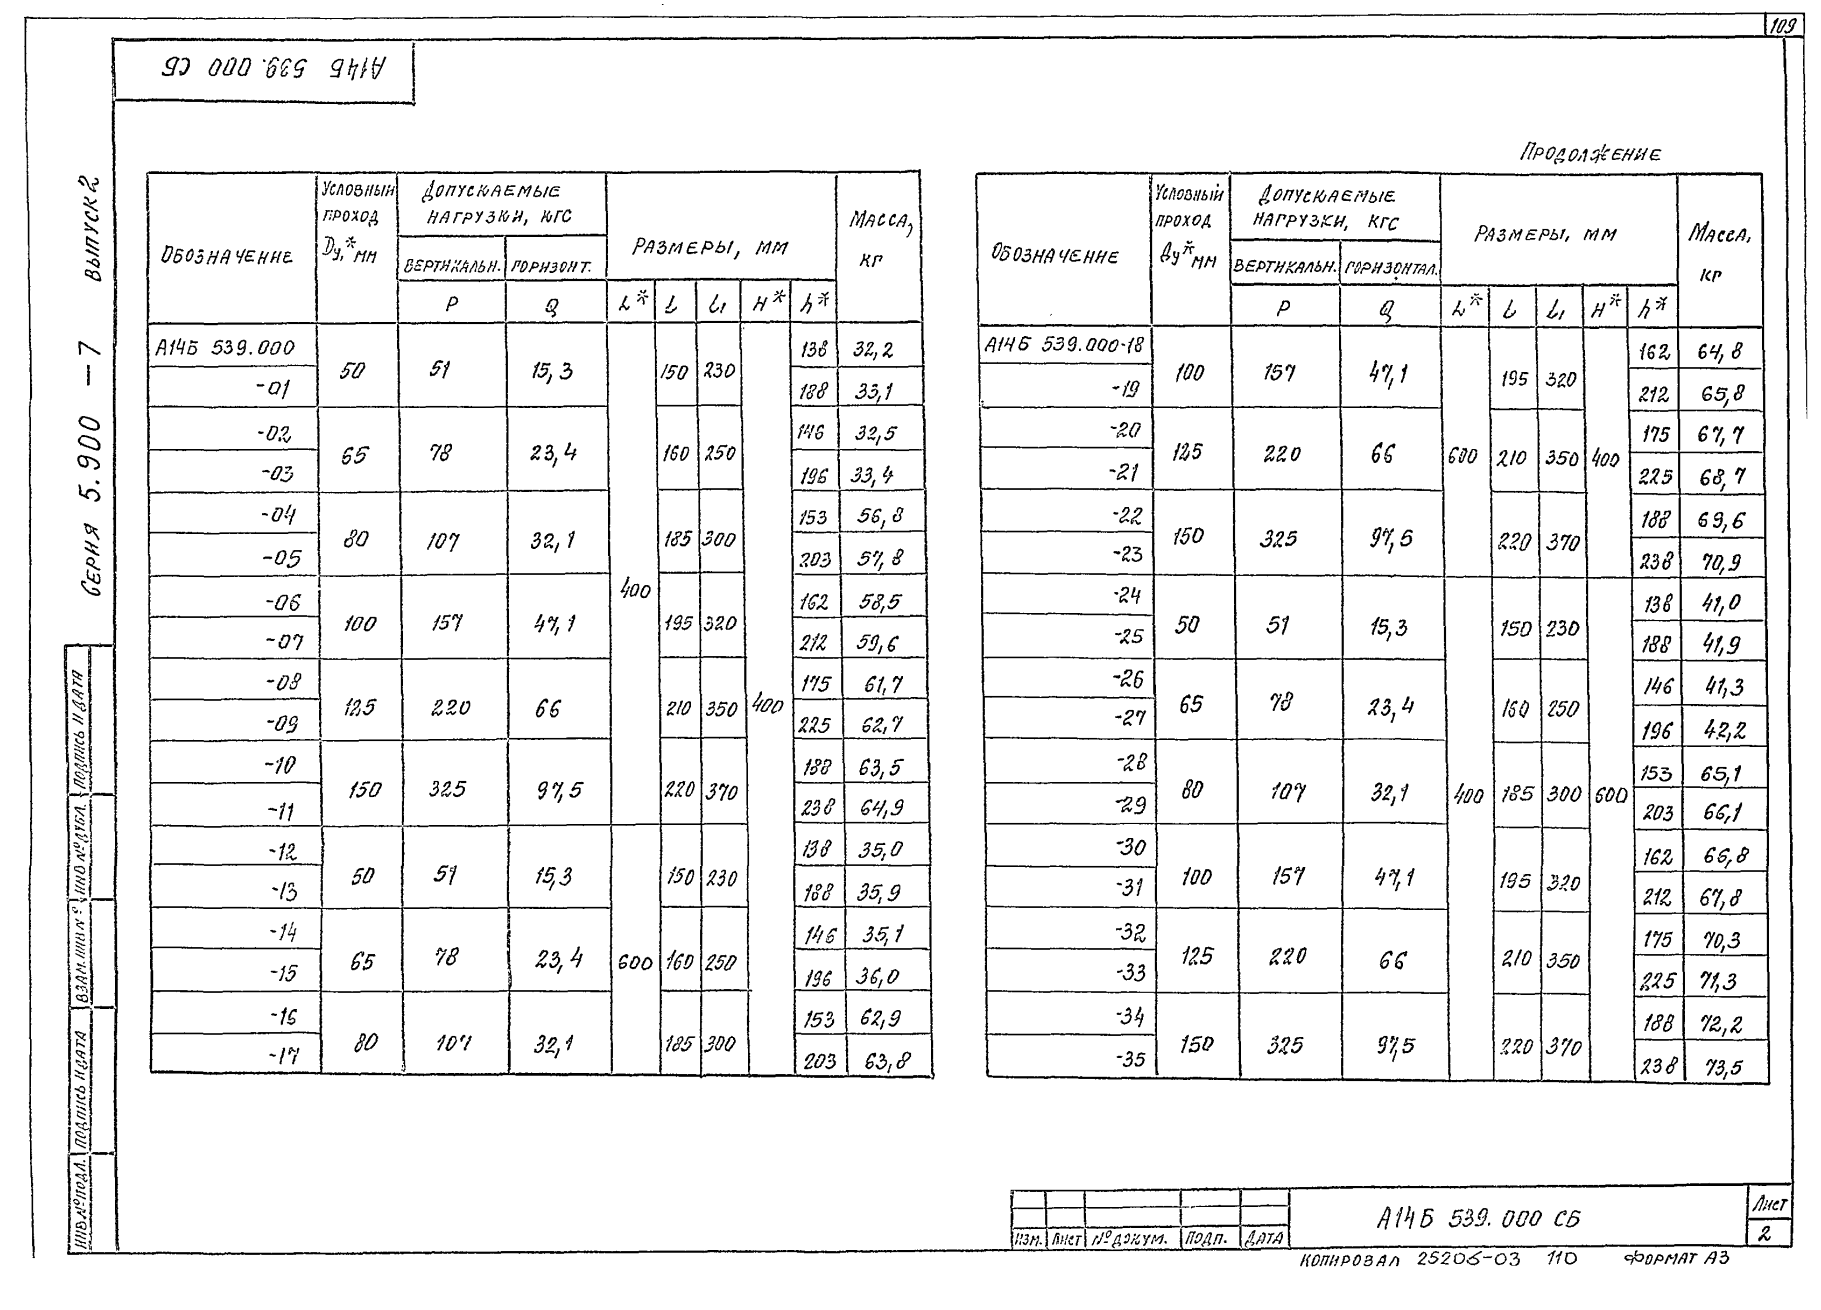 109
А14Б 539.000 СБ
Серия 5.900 – 7 выпуск 2
Продолжение
Обозначение | Условный проход Ду,* мм | Допускаемые нагрузки, кгс | Размеры, мм | Масса, кг
вертикальн. | горизонт.
P | Q | L* | l | l₁ | H* | h*
А14Б 539.000 | 50 | 51 | 15,3 | 400 | 150 | 230 | 400 | 138 | 32,2
-01 | 188 | 33,1
-02 | 65 | 78 | 23,4 | 160 | 250 | 146 | 32,5
-03 | 196 | 33,4
-04 | 80 | 107 | 32,1 | 185 | 300 | 153 | 56,8
-05 | 203 | 57,8
-06 | 100 | 157 | 47,1 | 195 | 320 | 162 | 58,5
-07 | 212 | 59,6
-08 | 125 | 220 | 66 | 210 | 350 | 175 | 61,7
-09 | 225 | 62,7
-10 | 150 | 325 | 97,5 | 220 | 370 | 188 | 63,5
-11 | 238 | 64,9
-12 | 50 | 51 | 15,3 | 600 | 150 | 230 | 138 | 35,0
-13 | 188 | 35,9
-14 | 65 | 78 | 23,4 | 160 | 250 | 146 | 35,1
-15 | 196 | 36,0
-16 | 80 | 107 | 32,1 | 185 | 300 | 153 | 62,9
-17 | 203 | 63,8
Обозначение | Условный проход Ду* мм | Допускаемые нагрузки, кгс | Размеры, мм | Масса, кг
вертикальн. | горизонтал.
P | Q | L* | l | l₁ | H* | h*
А14Б 539.000-18 | 100 | 157 | 47,1 | 600 | 195 | 320 | 400 | 162 | 64,8
-19 | 212 | 65,8
-20 | 125 | 220 | 66 | 210 | 350 | 175 | 67,7
-21 | 225 | 68,7
-22 | 150 | 325 | 97,5 | 220 | 370 | 188 | 69,6
-23 | 238 | 70,9
-24 | 50 | 51 | 15,3 | 400 | 150 | 230 | 600 | 138 | 41,0
-25 | 188 | 41,9
-26 | 65 | 78 | 23,4 | 160 | 250 | 146 | 41,3
-27 | 196 | 42,2
-28 | 80 | 107 | 32,1 | 185 | 300 | 153 | 65,1
-29 | 203 | 66,1
-30 | 100 | 157 | 47,1 | 195 | 320 | 162 | 66,8
-31 | 212 | 67,8
-32 | 125 | 220 | 66 | 210 | 350 | 175 | 70,3
-33 | 225 | 71,3
-34 | 150 | 325 | 97,5 | 220 | 370 | 188 | 72,2
-35 | 238 | 73,5
Инв.№ подл. | Подпись и дата | Взам.инв.№ | Инв.№ дубл. | Подпись и дата
Изм. | Лист | № докум. | Подп. | Дата
А14Б 539.000 СБ
Лист
2
Копировал 25206-03 110 Формат А3